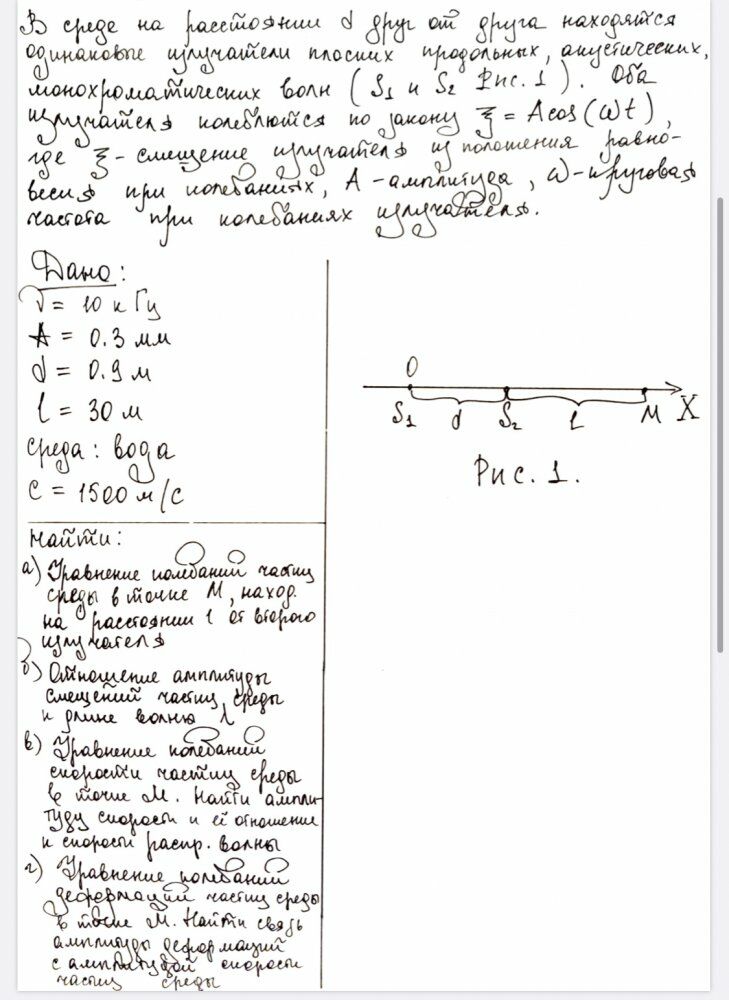 В среде на расстоянии d друг от друга находятся
одинаковые излучатели плоских продольных, акустических,
монохроматических волн (S1 и S2 Рис. 1). Оба
излучателя колеблются по закону ξ = Acos(ωt),
где ξ - смещение излучателя из положения равно-
весия при колебаниях, A - амплитуда, ω - круговая
частота при колебаниях излучателя.
Дано:
ν = 10 кГц
A = 0.3 мм
d = 0.9 м
l = 30 м
среда: вода
c = 1500 м/с
Найти:
а) Уравнение колебаний частиц
среды в точке М, наход.
на расстоянии l от второго
излучателя
б) Отношение амплитуды
смещений частиц среды
к длине волны λ
в) Уравнение колебаний
скорости частиц среды
в точке М. Найти ампли-
туду скорости и её отношение
к скорости распр. волны
г) Уравнение колебаний
деформаций частиц среды
в точке М. Найти связь
амплитуды деформаций
с амплитудой скорости
частиц среды
O
S1 d S2 l M X
Рис. 1.